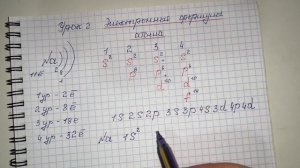 Урок 2 Электронные формулы
атома
1 2 3 4
Na )))
s² s² s² s²
p⁶ p⁶ p⁶
d¹⁰ d¹⁰
f¹⁴
11ē 2 8 1
1 ур - 2ē
2 ур - 8ē
3 ур - 18ē
4 ур - 32ē
1s 2s 2p 3s 3p 4s 3d 4p 4d
Na 1s²